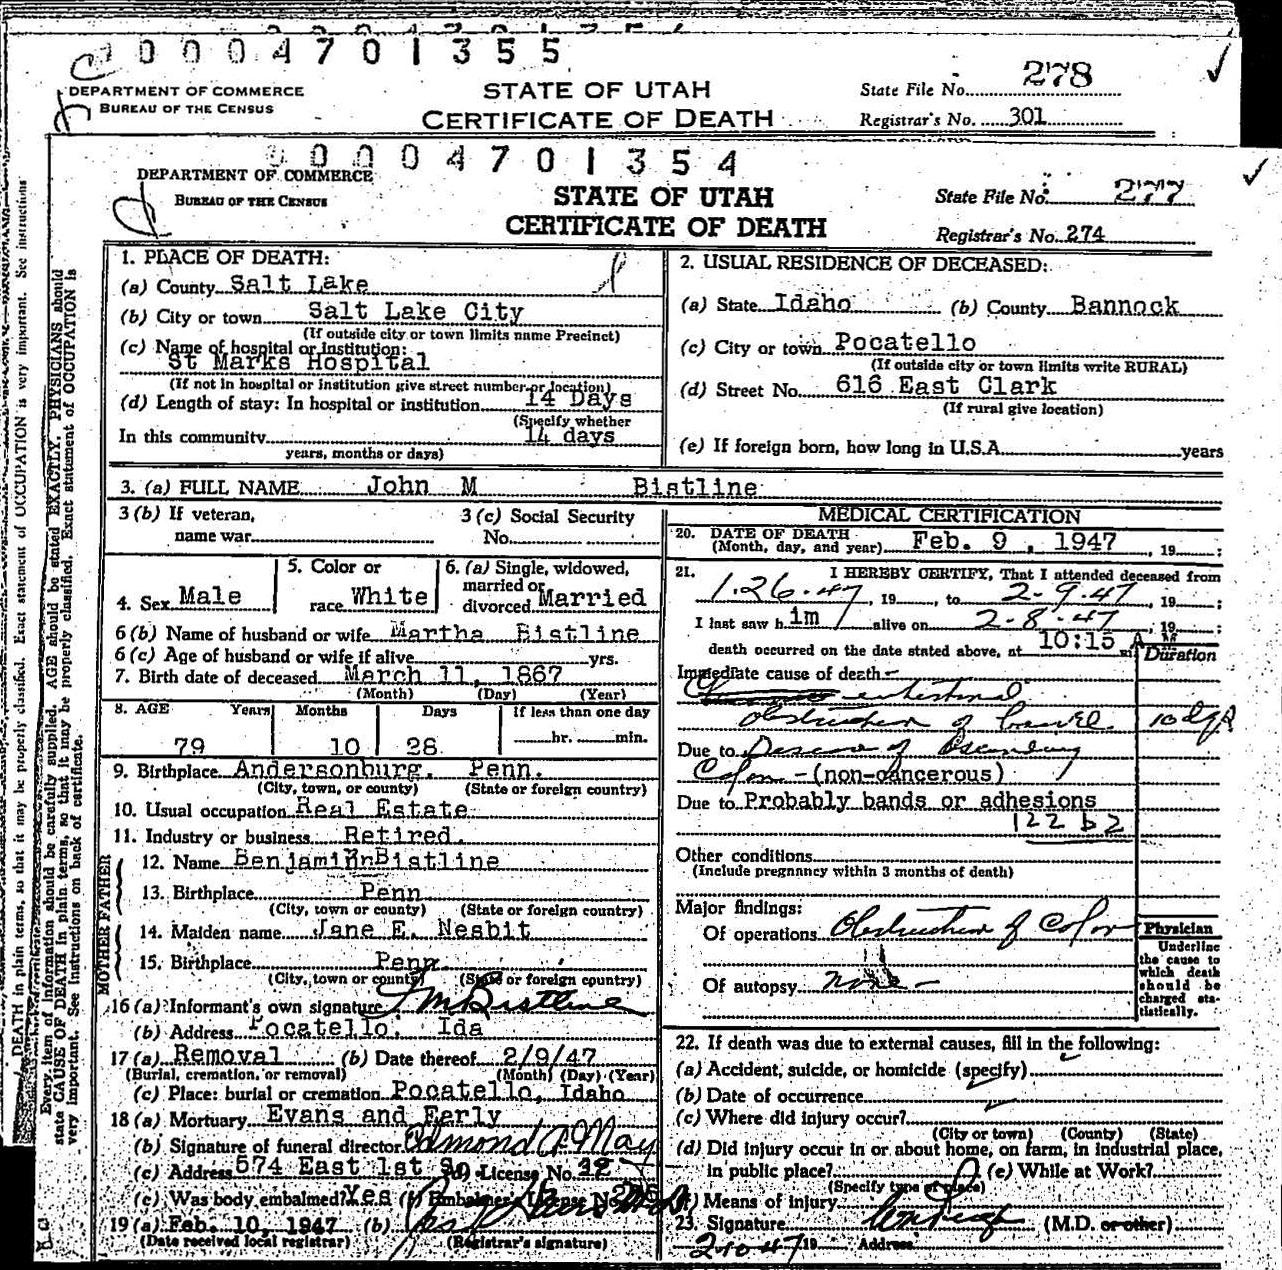 0 0 0 4 7 0 1 3 5 5
DEPARTMENT OF COMMERCE
BUREAU OF THE CENSUS
STATE OF UTAH
CERTIFICATE OF DEATH
State File No. 278
Registrar's No. 301
0 0 0 0 4 7 0 1 3 5 4
DEPARTMENT OF COMMERCE
BUREAU OF THE CENSUS
STATE OF UTAH
CERTIFICATE OF DEATH
State File No. 277
Registrar's No. 274
DEATH in plain terms, so that it may be properly classified. Exact statement of OCCUPATION is very important. See instructions
Every item of information should be carefully supplied. AGE should be stated EXACTLY. PHYSICIANS should
state CAUSE OF DEATH in plain terms, so that it may be properly classified. Exact statement of OCCUPATION is
very important. See instructions on back of certificate.
1. PLACE OF DEATH:
(a) County Salt Lake
(b) City or town Salt Lake City
(If outside city or town limits name Precinct)
(c) Name of hospital or institution:
St Marks Hospital
(If not in hospital or institution give street number or location)
(d) Length of stay: In hospital or institution 14 Days
(Specify whether
In this community 14 days
years, months or days)
2. USUAL RESIDENCE OF DECEASED:
(a) State Idaho (b) County Bannock
(c) City or town Pocatello
(If outside city or town limits write RURAL)
(d) Street No. 616 East Clark
(If rural give location)
(e) If foreign born, how long in U.S.A. years
3. (a) FULL NAME John M Bistline
3 (b) If veteran, 3 (c) Social Security
name war No.
4. Sex Male
5. Color or
race White
6. (a) Single, widowed,
married or
divorced Married
6 (b) Name of husband or wife Martha Bistline
6 (c) Age of husband or wife if alive yrs.
7. Birth date of deceased March 11, 1867
(Month) (Day) (Year)
8. AGE Years Months Days If less than one day
79 10 28 hr. min.
9. Birthplace Andersonburg. Penn.
(City, town, or county) (State or foreign country)
10. Usual occupation Real Estate
11. Industry or business Retired.
FATHER
12. Name Benjamin Bistline
13. Birthplace Penn
(City, town or county) (State or foreign country)
MOTHER
14. Maiden name Jane E. Nesbit
15. Birthplace Penn
(City, town or county) (State or foreign country)
16 (a) Informant's own signature Bistline
(b) Address Pocatello, Ida
17 (a) Removal (b) Date thereof 2/9/47
(Burial, cremation, or removal) (Month) (Day) (Year)
(c) Place: burial or cremation Pocatello, Idaho
18 (a) Mortuary Evans and Early
(b) Signature of funeral director Edmond A. May
(c) Address 574 East 1st So License No.
(e) Was body embalmed? Yes (f) Embalmer License No.
19 (a) Feb. 10, 1947 (b)
(Date received local registrar) (Registrar's signature)
MEDICAL CERTIFICATION
20. DATE OF DEATH
(Month, day, and year) Feb. 9, 1947, 19 ;
21. I HEREBY CERTIFY, That I attended deceased from
1.26.47, 19 , to 2-9.47, 19 ;
I last saw h im alive on 2-8.47, 19 ;
death occurred on the date stated above, at 10:15 A M
Duration
Immediate cause of death—
intestinal
obstruction of bowel. 10 dys
Due to Disease of Ascending
Colon - (non-cancerous)
Due to Probably bands or adhesions
122 b2
Other conditions
(Include pregnancy within 3 months of death)
Major findings:
Of operations Obstruction of Colon
Of autopsy none -
Physician
Underline
the cause to
which death
should be
charged sta-
tistically.
22. If death was due to external causes, fill in the following:
(a) Accident, suicide, or homicide (specify)
(b) Date of occurrence
(c) Where did injury occur?
(City or town) (County) (State)
(d) Did injury occur in or about home, on farm, in industrial place,
in public place? (e) While at Work?
(Specify type of place)
(f) Means of injury
23. Signature (M.D. or other)
2-10-47 19 Address